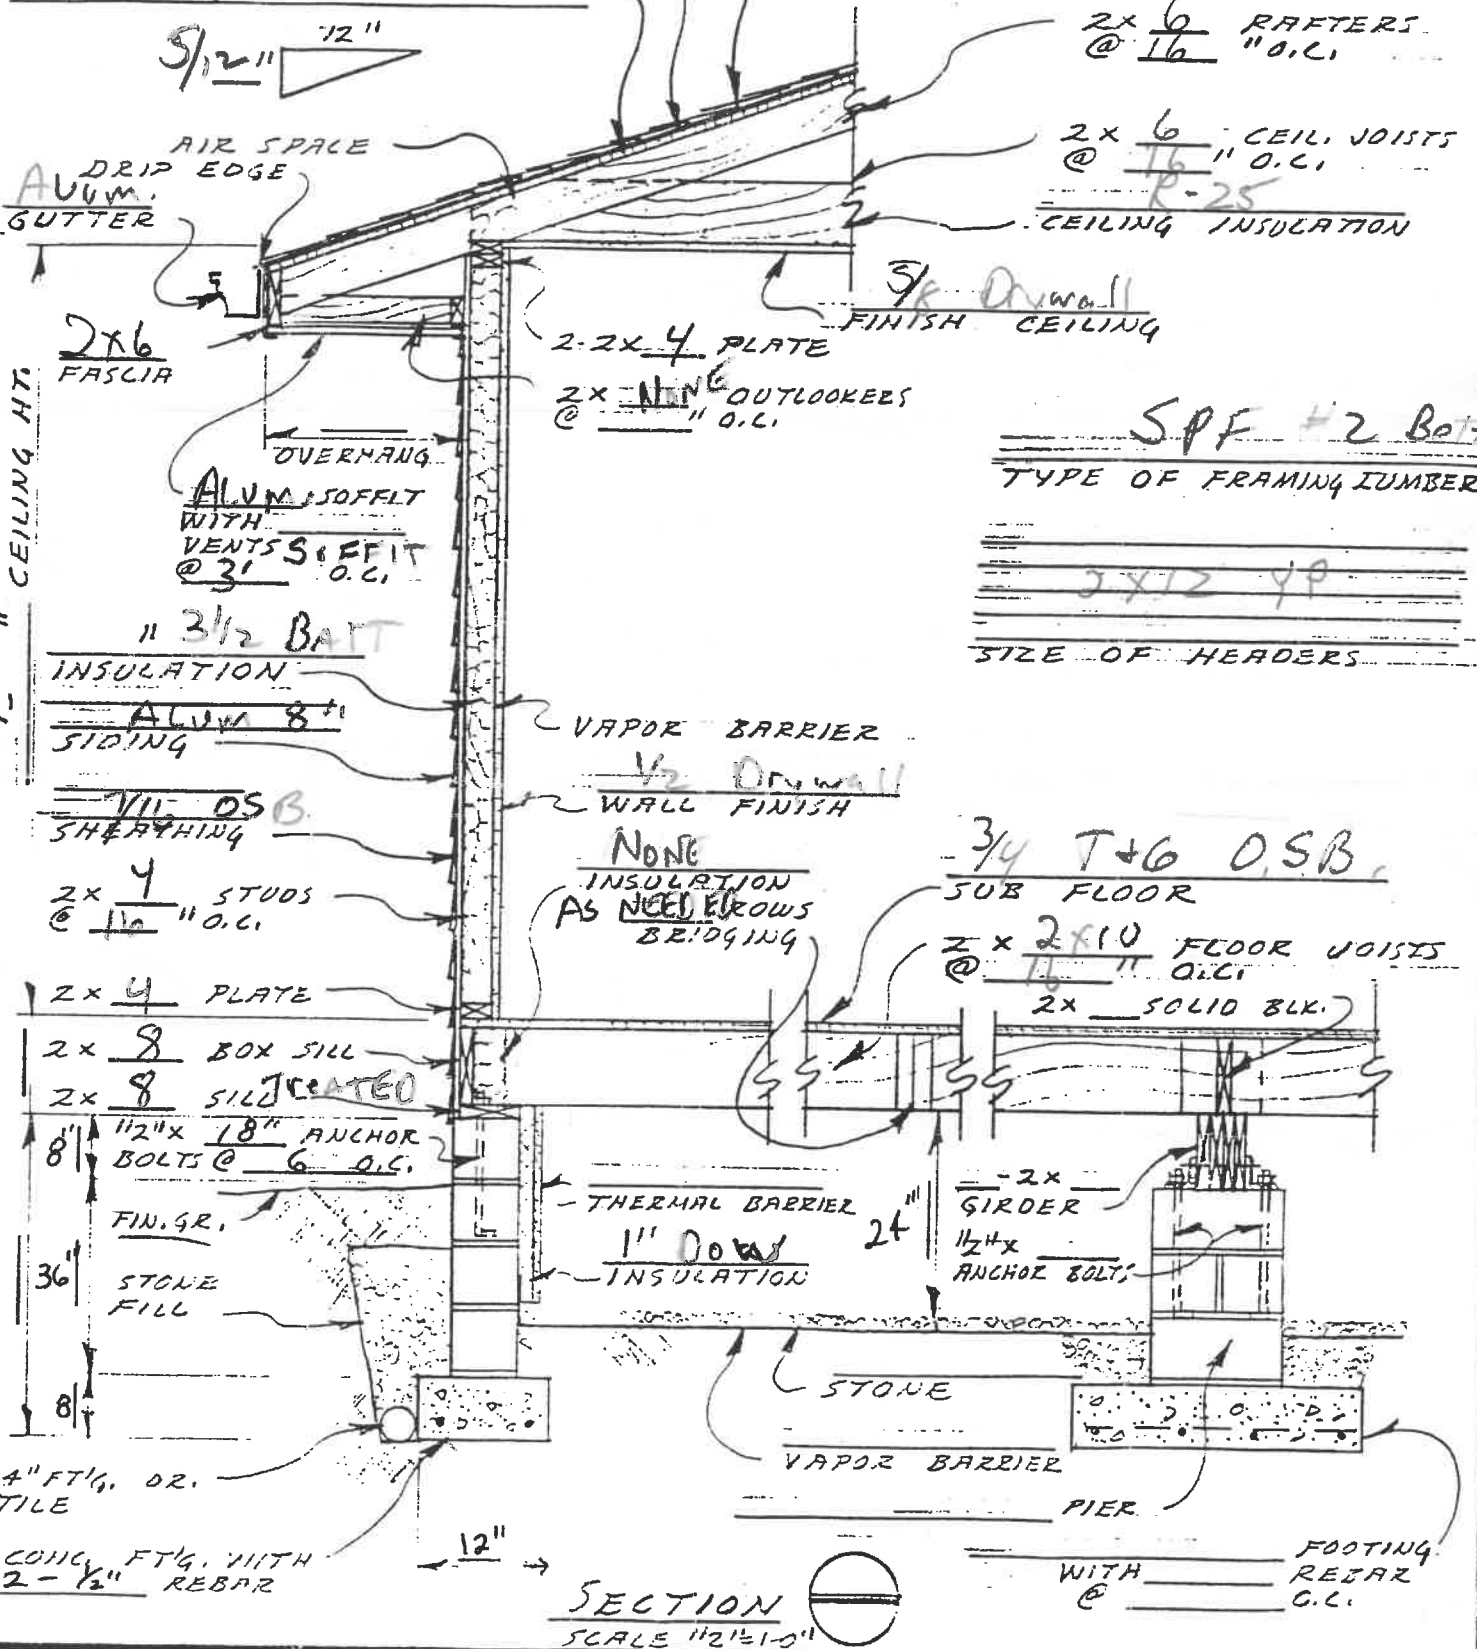 5/12"
12"
2x 6 RAFTERS
@ 16 "O.C.
AIR SPACE
DRIP EDGE
ALUM.
GUTTER
2x 6 CEIL. JOISTS
@ 16 "O.C.
R-25
CEILING INSULATION
5/8 Drywall
FINISH CEILING
2x6
FASCIA
2-2x 4 PLATE
2x NONE OUTLOOKERS
@ ____ " O.C.
OVERHANG
CEILING HT.
ALUM. SOFFIT
WITH
VENTS SOFFIT
@ 3' O.C.
SPF #2
TYPE OF FRAMING LUMBER
2X12 YP
SIZE OF HEADERS
" 3 1/2 BATT
INSULATION
ALUM 8"
SIDING
VAPOR BARRIER
1/2 Drywall
WALL FINISH
7/16 OSB
SHEATHING
2x 4 STUDS
@ 16 "O.C.
NONE
INSULATION
AS NEEDED ROWS
BRIDGING
3/4 T+G O.S.B.
SUB FLOOR
2 x 2x10 FLOOR JOISTS
@ 16 " O.C.
2x __ SOLID BLK.
2x 4 PLATE
2x 8 BOX SILL
2x 8 SILL TREATED
1/2"x 18" ANCHOR
BOLTS @ 6 O.C.
8"
FIN. GR.
36"
STONE
FILL
8"
THERMAL BARRIER
1" Dow
INSULATION
24"
__-2x __
GIRDER
1/2"x ____
ANCHOR BOLTS
STONE
VAPOR BARRIER
PIER
4" FT'G. DR.
TILE
CONC. FT'G. WITH
2 - 1/2" REBAR
12"
FOOTING
WITH ____ REBAR
@ ____ O.C.
SECTION
SCALE 1/2"=1'-0"